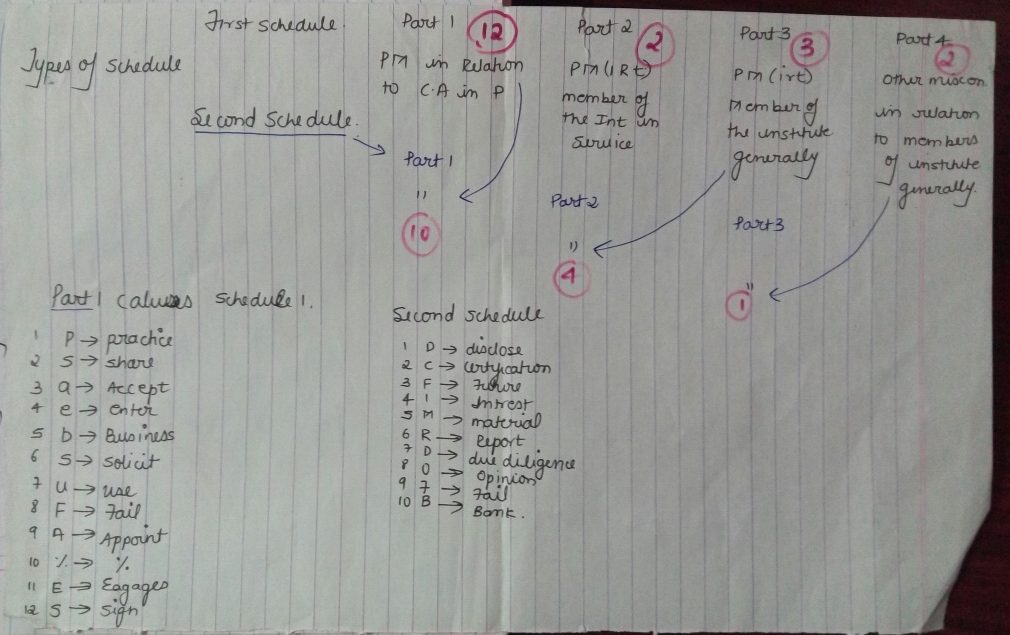 First schedule.
Part 1 12
Part 2 2
Part 3 3
Part 4 2
Types of schedule
PM in Relation
to C.A in P
PM (I R t)
member of
the Int in
Service
PM (irt)
Member of
the institute
generally
other miscon
in relation
to members
of institute
generally.
Second Schedule.
Part 1
"
10
Part 2
"
4
Part 3
"
1
Part 1 Caluses Schedule 1.
1 P → practice
2 S → share
3 a → Accept
4 e → enter
5 b → Business
6 S → solicit
7 U → use
8 F → Fail
9 A → Appoint
10 % → %
11 E → Eagages
12 S → Sign
Second schedule
1 D → disclose
2 C → certification
3 F → Future
4 I → Intrest
5 M → material
6 R → Report
7 D → due diligence
8 O → opinion
9 F → Fail
10 B → Bank.